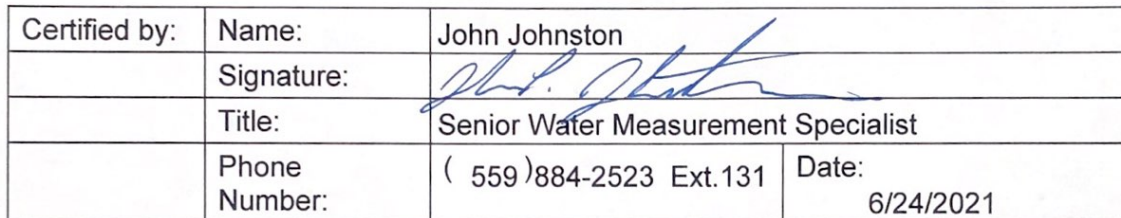 Certified by: Name: John Johnston
Signature:
Title: Senior Water Measurement Specialist
Phone Number: ( 559 ) 884-2523 Ext.131 Date: 6/24/2021